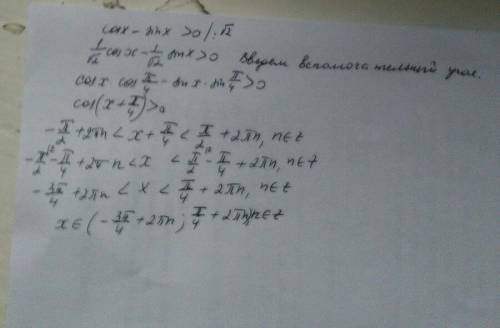 cosx - sinx > 0 /:√2
1/√2 cosx - 1/√2 sinx > 0 Введем вспомогательный угол.
cosx cos π/4 - sinx · sin π/4 > 0
cos(x + π/4) > 0
-π/2 + 2πn < x + π/4 < π/2 + 2πn, n∈z
-π/2 - π/4 + 2πn < x < π/2 - π/4 + 2πn, n∈z
-3π/4 + 2πn < x < π/4 + 2πn, n∈z
x∈(-3π/4 + 2πn; π/4 + 2πn), n∈z